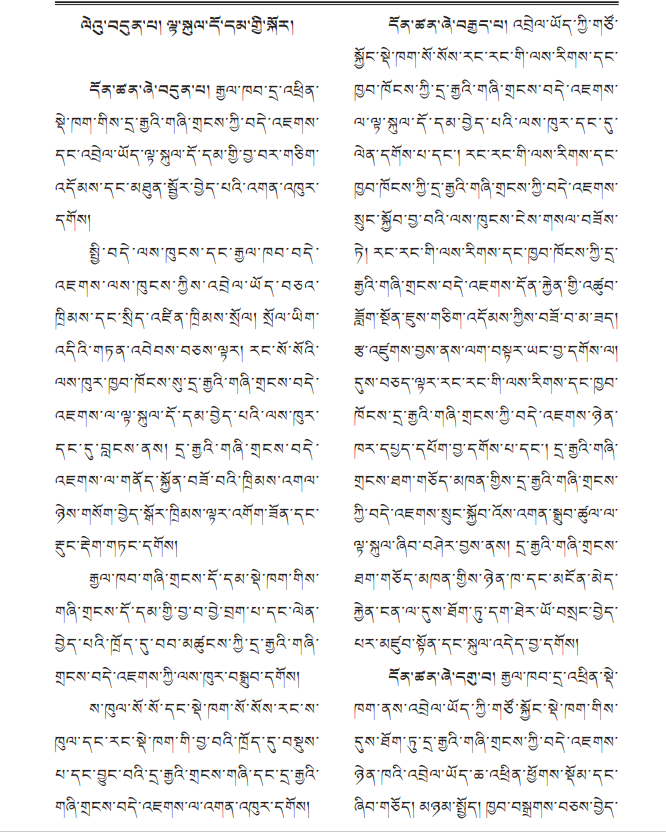 ལེའུ་བདུན་པ། ལྟ་སྐུལ་དོ་དམ་གྱི་སྐོར།
དོན་ཚན་ཞེ་བདུན་པ། རྒྱལ་ཁབ་དྲ་འཕྲིན་
སྡེ་ཁག་གིས་དྲ་རྒྱའི་གཞི་གྲངས་ཀྱི་བདེ་འཇགས་
དང་འབྲེལ་ཡོད་ལྟ་སྐུལ་དོ་དམ་གྱི་བྱ་བར་གཅིག་
འདོམས་དང་མཐུན་སྦྱོར་བྱེད་པའི་འགན་འཁུར་
དགོས།
སྤྱི་བདེ་ལས་ཁུངས་དང་རྒྱལ་ཁབ་བདེ་
འཇགས་ལས་ཁུངས་ཀྱིས་འབྲེལ་ཡོད་བཅའ་
ཁྲིམས་དང་སྲིད་འཛིན་ཁྲིམས་སྲོལ། སྲོལ་ཡིག་
འདིའི་གཏན་འབེབས་བཅས་ལྟར། རང་སོ་སོའི་
ལས་ཁུར་ཁྱབ་ཁོངས་སུ་དྲ་རྒྱའི་གཞི་གྲངས་བདེ་
འཇགས་ལ་ལྟ་སྐུལ་དོ་དམ་བྱེད་པའི་ལས་ཁུར་
དང་དུ་བླངས་ནས། དྲ་རྒྱའི་གཞི་གྲངས་བདེ་
འཇགས་ལ་གནོད་སྐྱོན་བཟོ་བའི་ཁྲིམས་འགལ་
ཉེས་གསོག་བྱེད་སྒོར་ཁྲིམས་ལྟར་འགོག་ཟོན་དང་
རྡུང་རྡེག་གཏང་དགོས།
རྒྱལ་ཁབ་གཞི་གྲངས་དོ་དམ་སྡེ་ཁག་གིས་
གཞི་གྲངས་དོ་དམ་གྱི་བྱ་བ་བྱེ་བྲག་པ་དང་ལེན་
བྱེད་པའི་ཁྲོད་དུ་བབ་མཚུངས་ཀྱི་དྲ་རྒྱའི་གཞི་
གྲངས་བདེ་འཇགས་ཀྱི་ལས་ཁུར་བསྒྲུབ་དགོས།
ས་ཁུལ་སོ་སོ་དང་སྡེ་ཁག་སོ་སོས་རང་ས་
ཁུལ་དང་རང་སྡེ་ཁག་གི་བྱ་བའི་ཁྲོད་དུ་བསྡུས་
པ་དང་བྱུང་བའི་དྲ་རྒྱའི་གྲངས་གཞི་དང་དྲ་རྒྱའི་
གཞི་གྲངས་བདེ་འཇགས་ལ་འགན་འཁུར་དགོས།
དོན་ཚན་ཞེ་བརྒྱད་པ། འབྲེལ་ཡོད་ཀྱི་གཙོ་
སྐྱོང་སྡེ་ཁག་སོ་སོས་རང་རང་གི་ལས་རིགས་དང་
ཁྱབ་ཁོངས་ཀྱི་དྲ་རྒྱའི་གཞི་གྲངས་བདེ་འཇགས་
ལ་ལྟ་སྐུལ་དོ་དམ་བྱེད་པའི་ལས་ཁུར་དང་དུ་
ལེན་དགོས་པ་དང་། རང་རང་གི་ལས་རིགས་དང་
ཁྱབ་ཁོངས་ཀྱི་དྲ་རྒྱའི་གཞི་གྲངས་ཀྱི་བདེ་འཇགས་
སྲུང་སྐྱོབ་བྱ་བའི་ལས་ཁུངས་ངེས་གསལ་བཟོས་
ཏེ། རང་རང་གི་ལས་རིགས་དང་ཁྱབ་ཁོངས་ཀྱི་དྲ་
རྒྱའི་གཞི་གྲངས་བདེ་འཇགས་དོན་རྐྱེན་གྱི་འཚུབ་
ཟློག་སྔོན་ཇུས་གཅིག་འདོམས་ཀྱིས་བཟོ་བ་མ་ཟད།
རྩ་འཛུགས་བྱས་ནས་ལག་བསྟར་ཡང་བྱ་དགོས་ལ།
དུས་བཅད་ལྟར་རང་རང་གི་ལས་རིགས་དང་ཁྱབ་
ཁོངས་དྲ་རྒྱའི་གཞི་གྲངས་ཀྱི་བདེ་འཇགས་ཉེན་
ཁར་དཔྱད་དཔོག་བྱ་དགོས་པ་དང་། དྲ་རྒྱའི་གཞི་
གྲངས་ཐག་གཅོད་མཁན་གྱིས་དྲ་རྒྱའི་གཞི་གྲངས་
ཀྱི་བདེ་འཇགས་སྲུང་སྐྱོབ་འོས་འགན་སྒྲུབ་ཚུལ་ལ་
ལྟ་སྐུལ་ཞིབ་བཤེར་བྱས་ནས། དྲ་རྒྱའི་གཞི་གྲངས་
ཐག་གཅོད་མཁན་གྱིས་ཉེན་ཁ་དང་མངོན་མེད་
རྐྱེན་ངན་ལ་དུས་ཐོག་ཏུ་དག་ཐེར་ཡོ་བསྲང་བྱེད་
པར་མཛུབ་སྟོན་དང་སྐུལ་འདེད་བྱ་དགོས།
དོན་ཚན་ཞེ་དགུ་བ། རྒྱལ་ཁབ་དྲ་འཕྲིན་སྡེ་
ཁག་ནས་འབྲེལ་ཡོད་ཀྱི་གཙོ་སྐྱོང་སྡེ་ཁག་གིས་
དུས་ཐོག་ཏུ་དྲ་རྒྱའི་གཞི་གྲངས་ཀྱི་བདེ་འཇགས་
ཉེན་ཁའི་འབྲེལ་ཡོད་ཆ་འཕྲིན་ཕྱོགས་སྡོམ་དང་
ཞིབ་གཅོད། མཉམ་སྤྱོད། ཁྱབ་བསྒྲགས་བཅས་བྱེད་